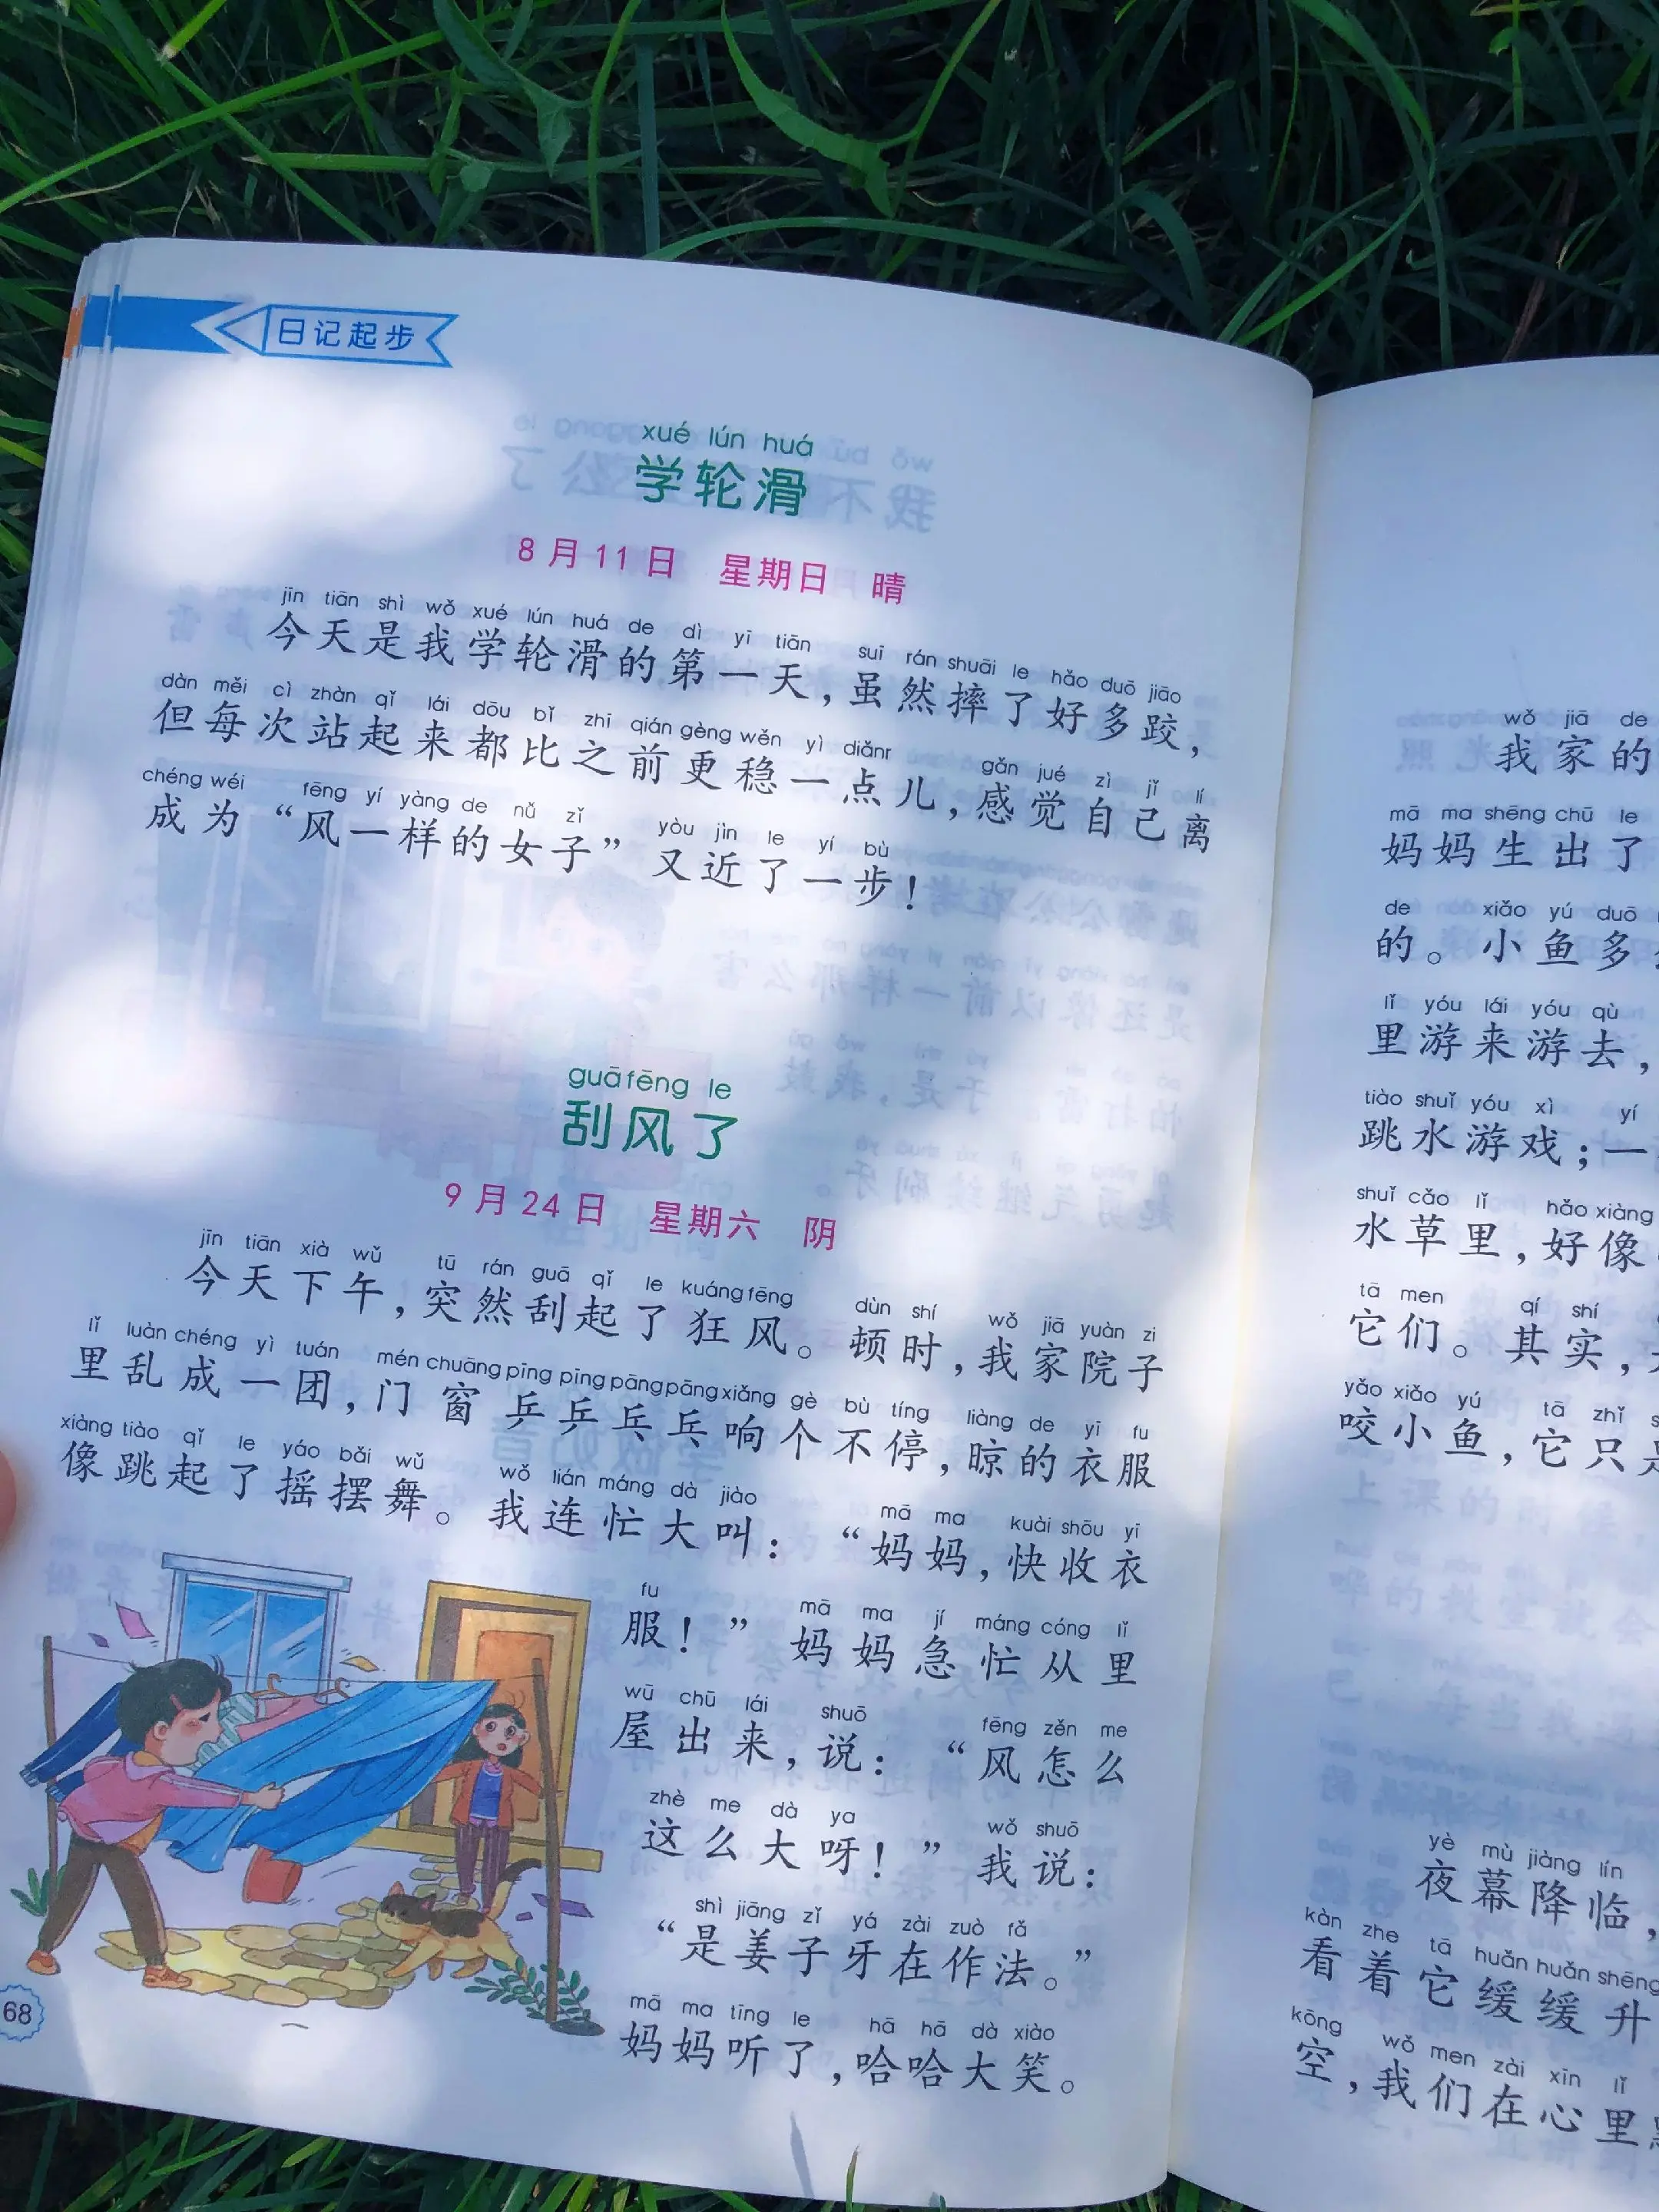 日记起步
xué lún huá
学轮滑
8月11日 星期日 晴
jīn tiān shì wǒ xué lún huá de dì yī tiān suī rán shuāi le hǎo duō jiāo
今天是我学轮滑的第一天，虽然摔了好多跤，
dàn měi cì zhàn qǐ lái dōu bǐ zhī qián gèng wěn yì diǎnr gǎn jué zì jǐ lí
但每次站起来都比之前更稳一点儿，感觉自己离
chéng wéi fēng yí yàng de nǚ zǐ yòu jìn le yí bù
成为“风一样的女子”又近了一步！
guā fēng le
刮风了
9月24日 星期六 阴
jīn tiān xià wǔ tū rán guā qǐ le kuáng fēng dùn shí wǒ jiā yuàn zi
今天下午，突然刮起了狂风。顿时，我家院子
lǐ luàn chéng yì tuán mén chuāng pīng pīng pāng pāng xiǎng gè bù tíng liàng de yī fu
里乱成一团，门窗乒乒乓乓响个不停，晾的衣服
xiàng tiào qǐ le yáo bǎi wǔ wǒ lián máng dà jiào mā ma kuài shōu yī
像跳起了摇摆舞。我连忙大叫：“妈妈，快收衣
fu mā ma jí máng cóng lǐ
服！”妈妈急忙从里
wū chū lái shuō fēng zěn me
屋出来，说：“风怎么
zhè me dà ya wǒ shuō
这么大呀！”我说：
shì jiāng zǐ yá zài zuò fǎ
“是姜子牙在作法。”
mā ma tīng le hā hā dà xiào
妈妈听了，哈哈大笑。
68
wǒ jiā de
我家的
mā ma shēng chū le
妈妈生出了
de xiǎo yú duō
的。小鱼多
lǐ yóu lái yóu qù
里游来游去，
tiào shuǐ yóu xì yí
跳水游戏；一
shuǐ cǎo lǐ hǎo xiàng
水草里，好像
tā men qí shí
它们。其实，
yǎo xiǎo yú tā zhǐ
咬小鱼，它只
yè mù jiàng lín
夜幕降临，
kàn zhe tā huǎn huǎn shēng
看着它缓缓升
kōng wǒ men zài xīn lǐ
空，我们在心里